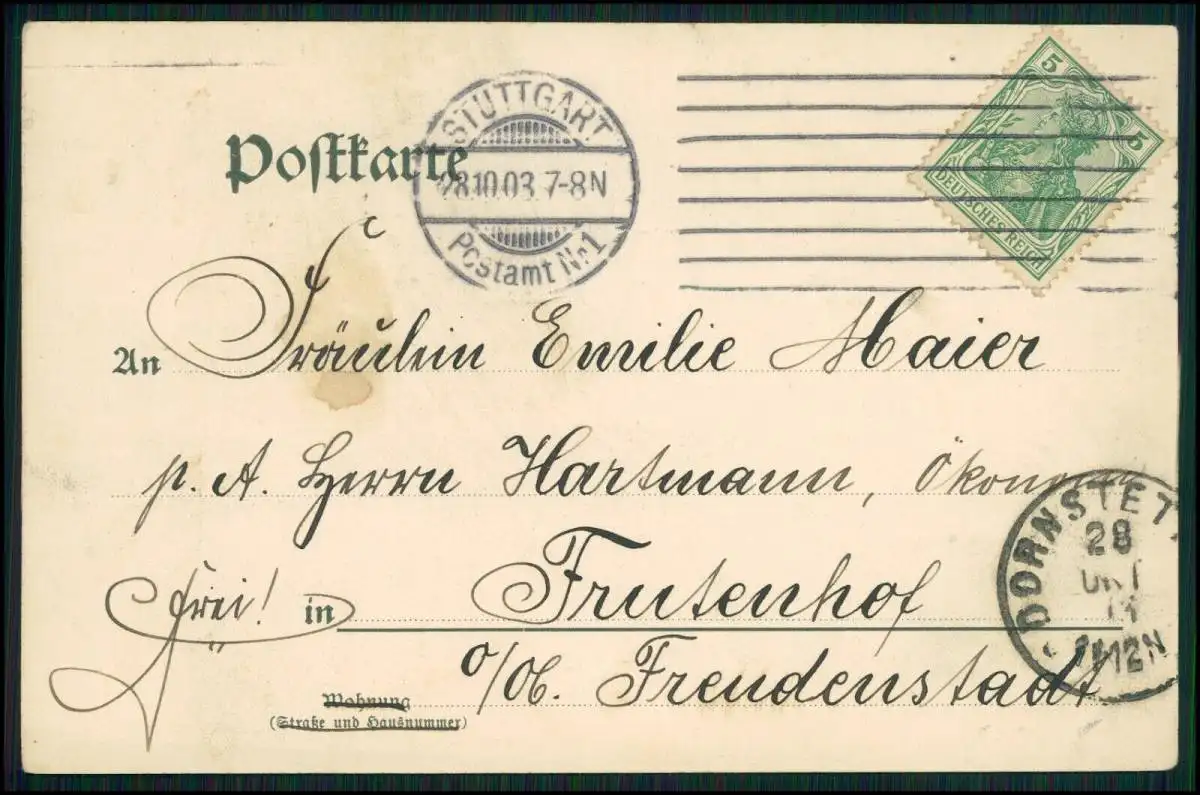 Postkarte
STUTTGART
28.10.03. 7-8N
Postamt Nr.1
5
5
DEUTSCHES REICH
An Fräulein Emilie Maier
p. A. Herrn Hartmann,
DORNSTET
28
OKT
12N
frei! in Frutenhof
o/Ob. Freudenstadt
Wohnung
(Straße und Hausnummer)